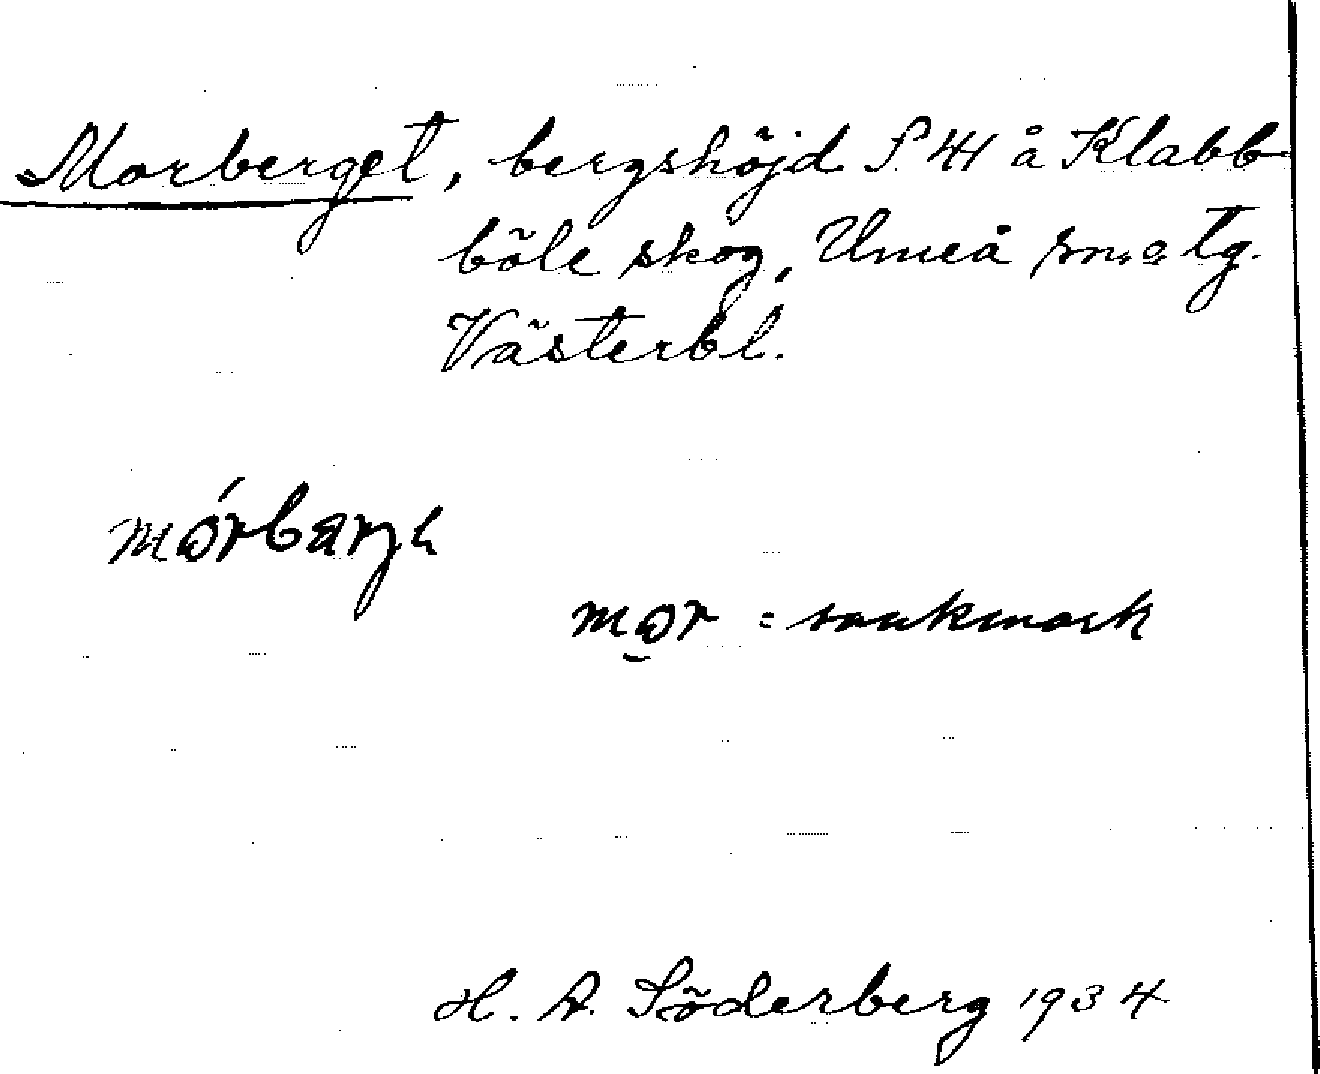 Morberget, bergshöjd S 41 å Klabb-
böle skog, Umeå sn. o. tg.
Västerbl.
mor = sankmark
H. A. Söderberg 1934